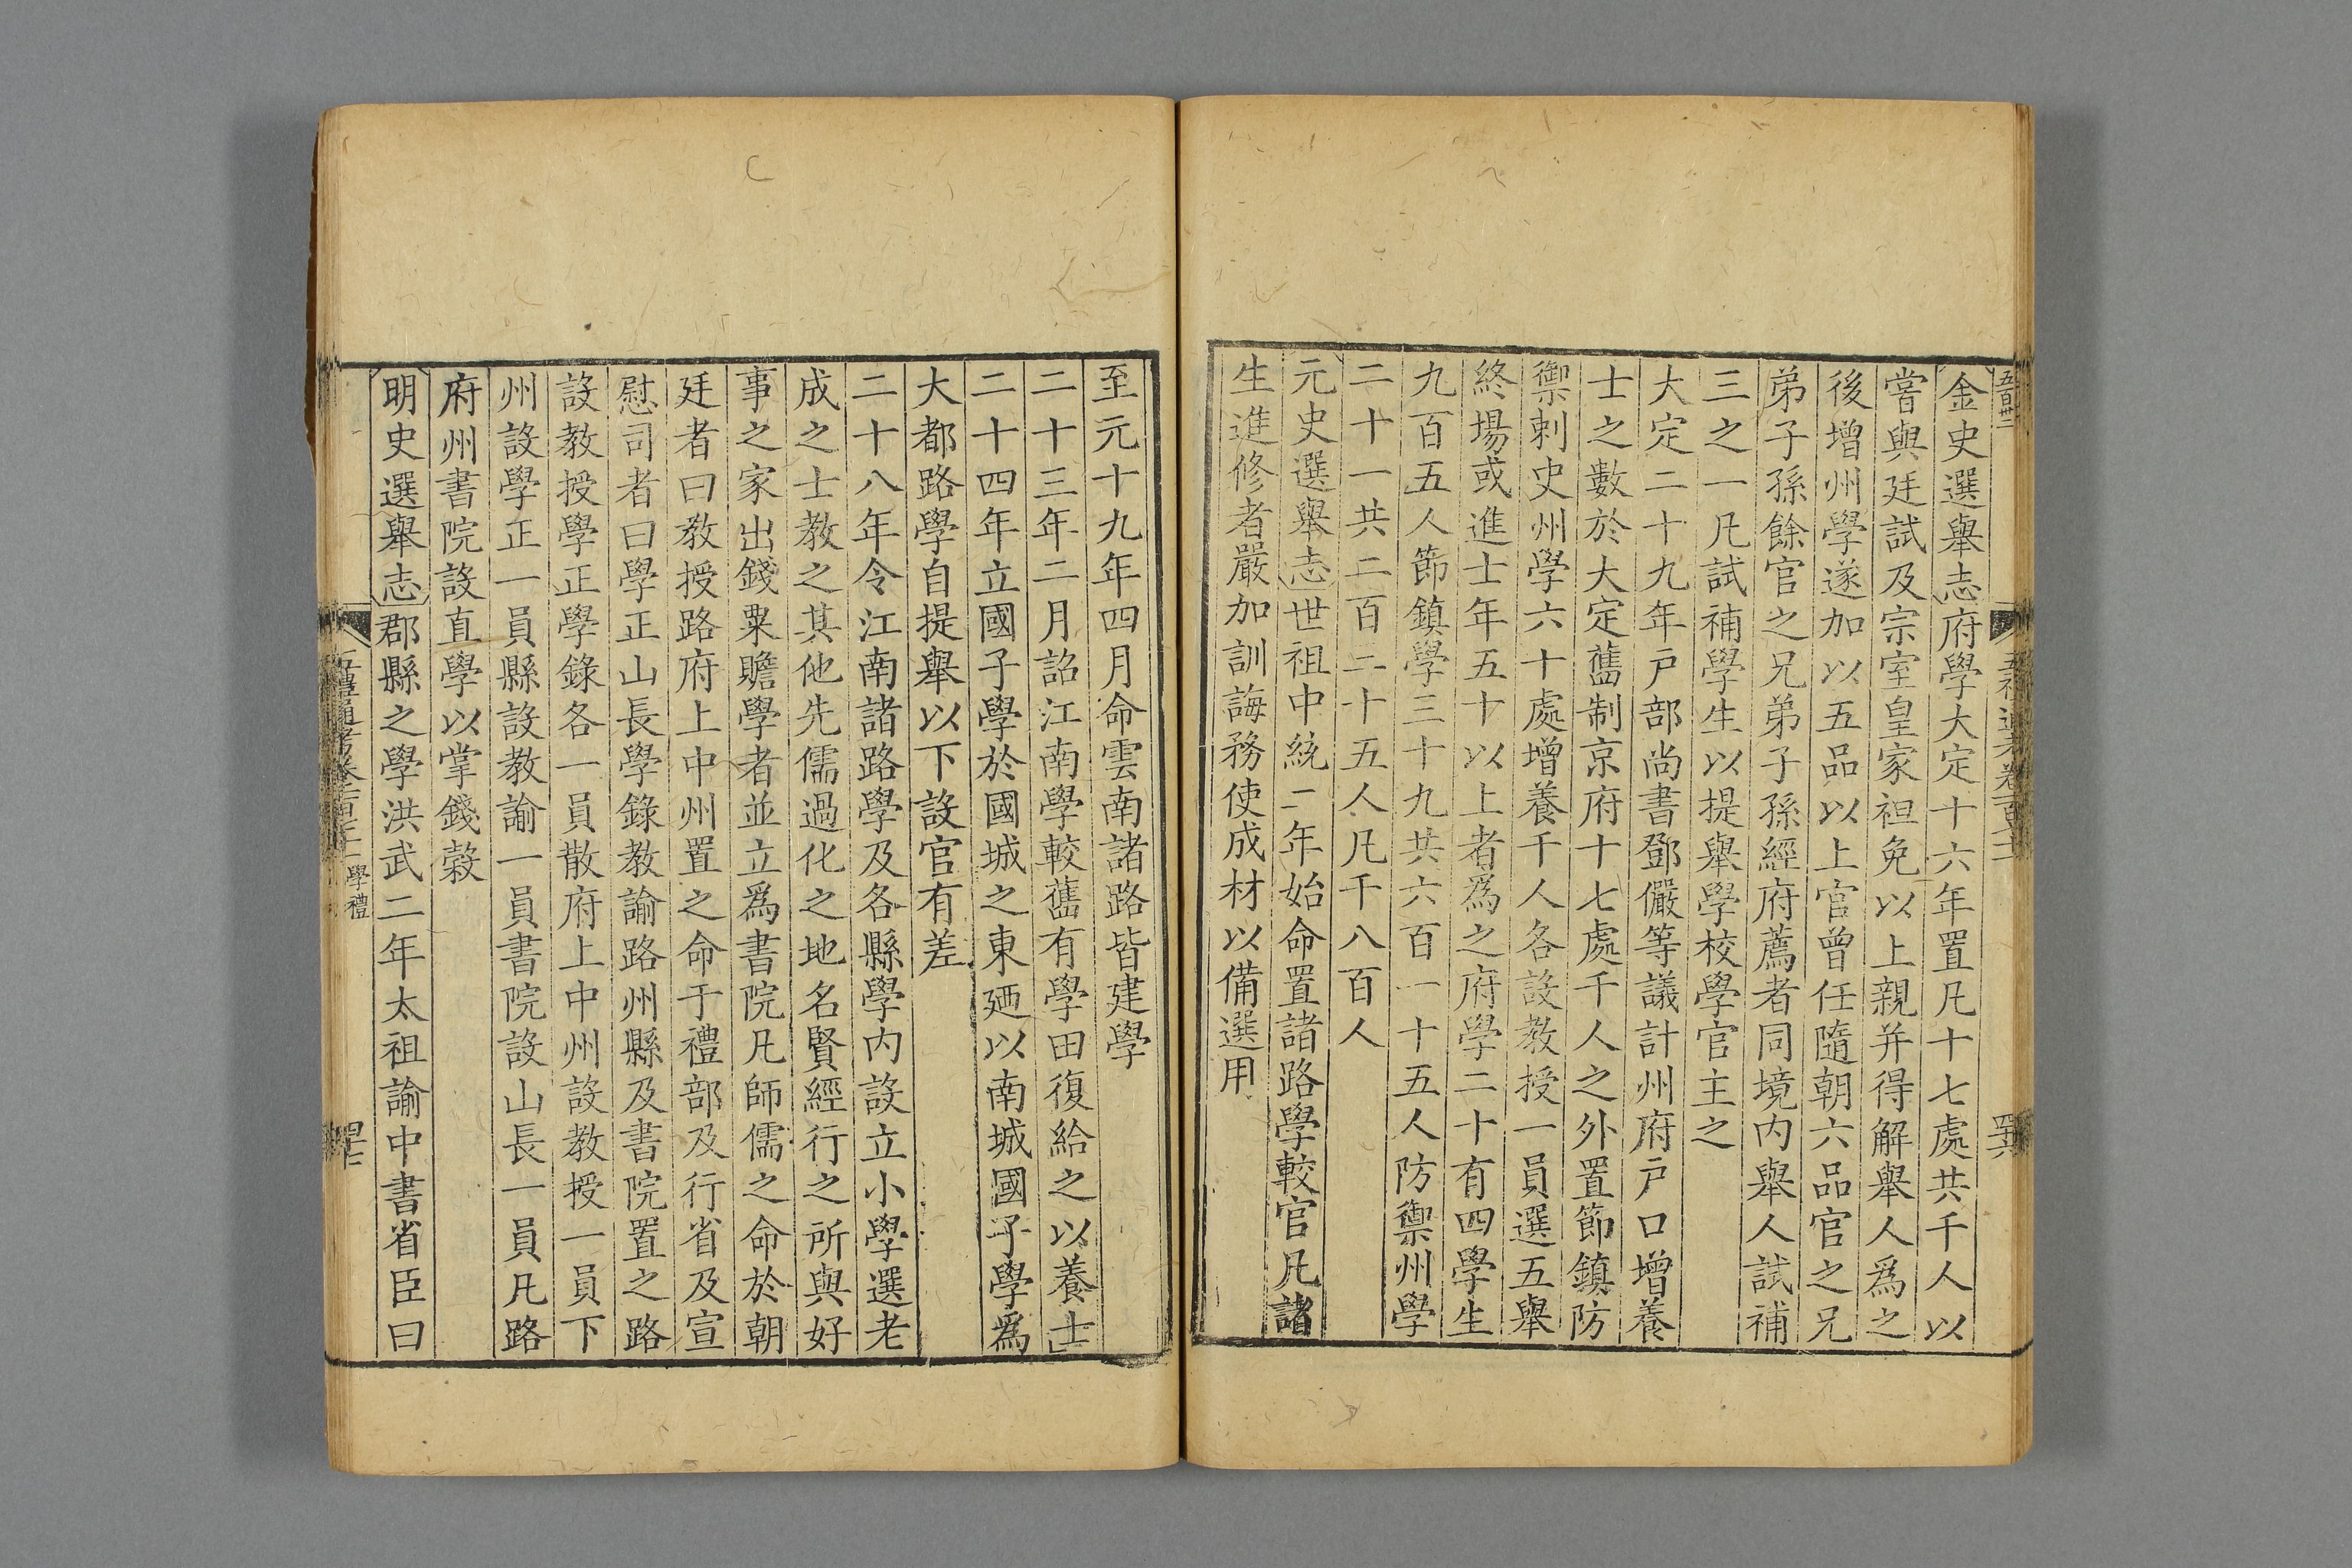 金史選舉志府學大定十六年置凡十七處共千人以
嘗與廷試及宗室皇家袒免以上親并得解舉人爲之
後增州學遂加以五品以上官曾任隨朝六品官之兄
弟子孫餘官之兄弟子孫經府薦者同境內舉人試補
三之一凡試補學生以提舉學校學官主之
大定二十九年戸部尚書鄧儼等議計州府戸口增養
士之數於大定舊制京府十七處千人之外置節鎮防
禦刺史州學六十處增養千人各設教授一員選五舉
終場或進士年五十以上者爲之府學二十有四學生
九百五人節鎮學三十九共六百一十五人防禦州學
二十一共二百二十五人凡千八百人
元史選舉志世祖中統二年始命置諸路學較官凡諸
生進修者嚴加訓誨務使成材以備選用
至元十九年四月命雲南諸路皆建學
二十三年二月詔江南學較舊有學田復給之以養士
二十四年立國子學於國城之東廼以南城國子學爲
大都路學自提舉以下設官有差
二十八年令江南諸路學及各縣學內設立小學選老
成之士教之其他先儒過化之地名賢經行之所與好
事之家出錢粟贍學者並立爲書院凡師儒之命於朝
廷者曰教授路府上中州置之命于禮部及行省及宣
慰司者曰學正山長學錄教諭路州縣及書院置之路
設教授學正學錄各一員散府上中州設教授一員下
州設學正一員縣設教諭一員書院設山長一員凡路
府州書院設直學以掌錢榖
明史選舉志郡縣之學洪武二年太祖諭中書省臣曰
學禮